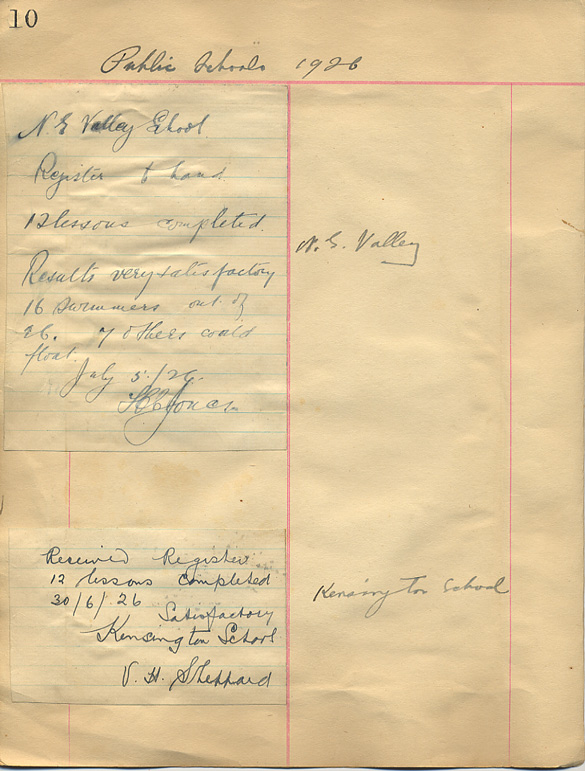 10
Public Schools 1926
N. E Valley School
Register to hand
12 lessons completed.
Results very satisfactory
16 swimmers out of
26. 7 others could
float.
July 5/26.
Jones
N. E. Valley
Received Register
12 lessons completed
30/6/26 Satisfactory
Kensington School
V. H. Sheppard
Kensington School